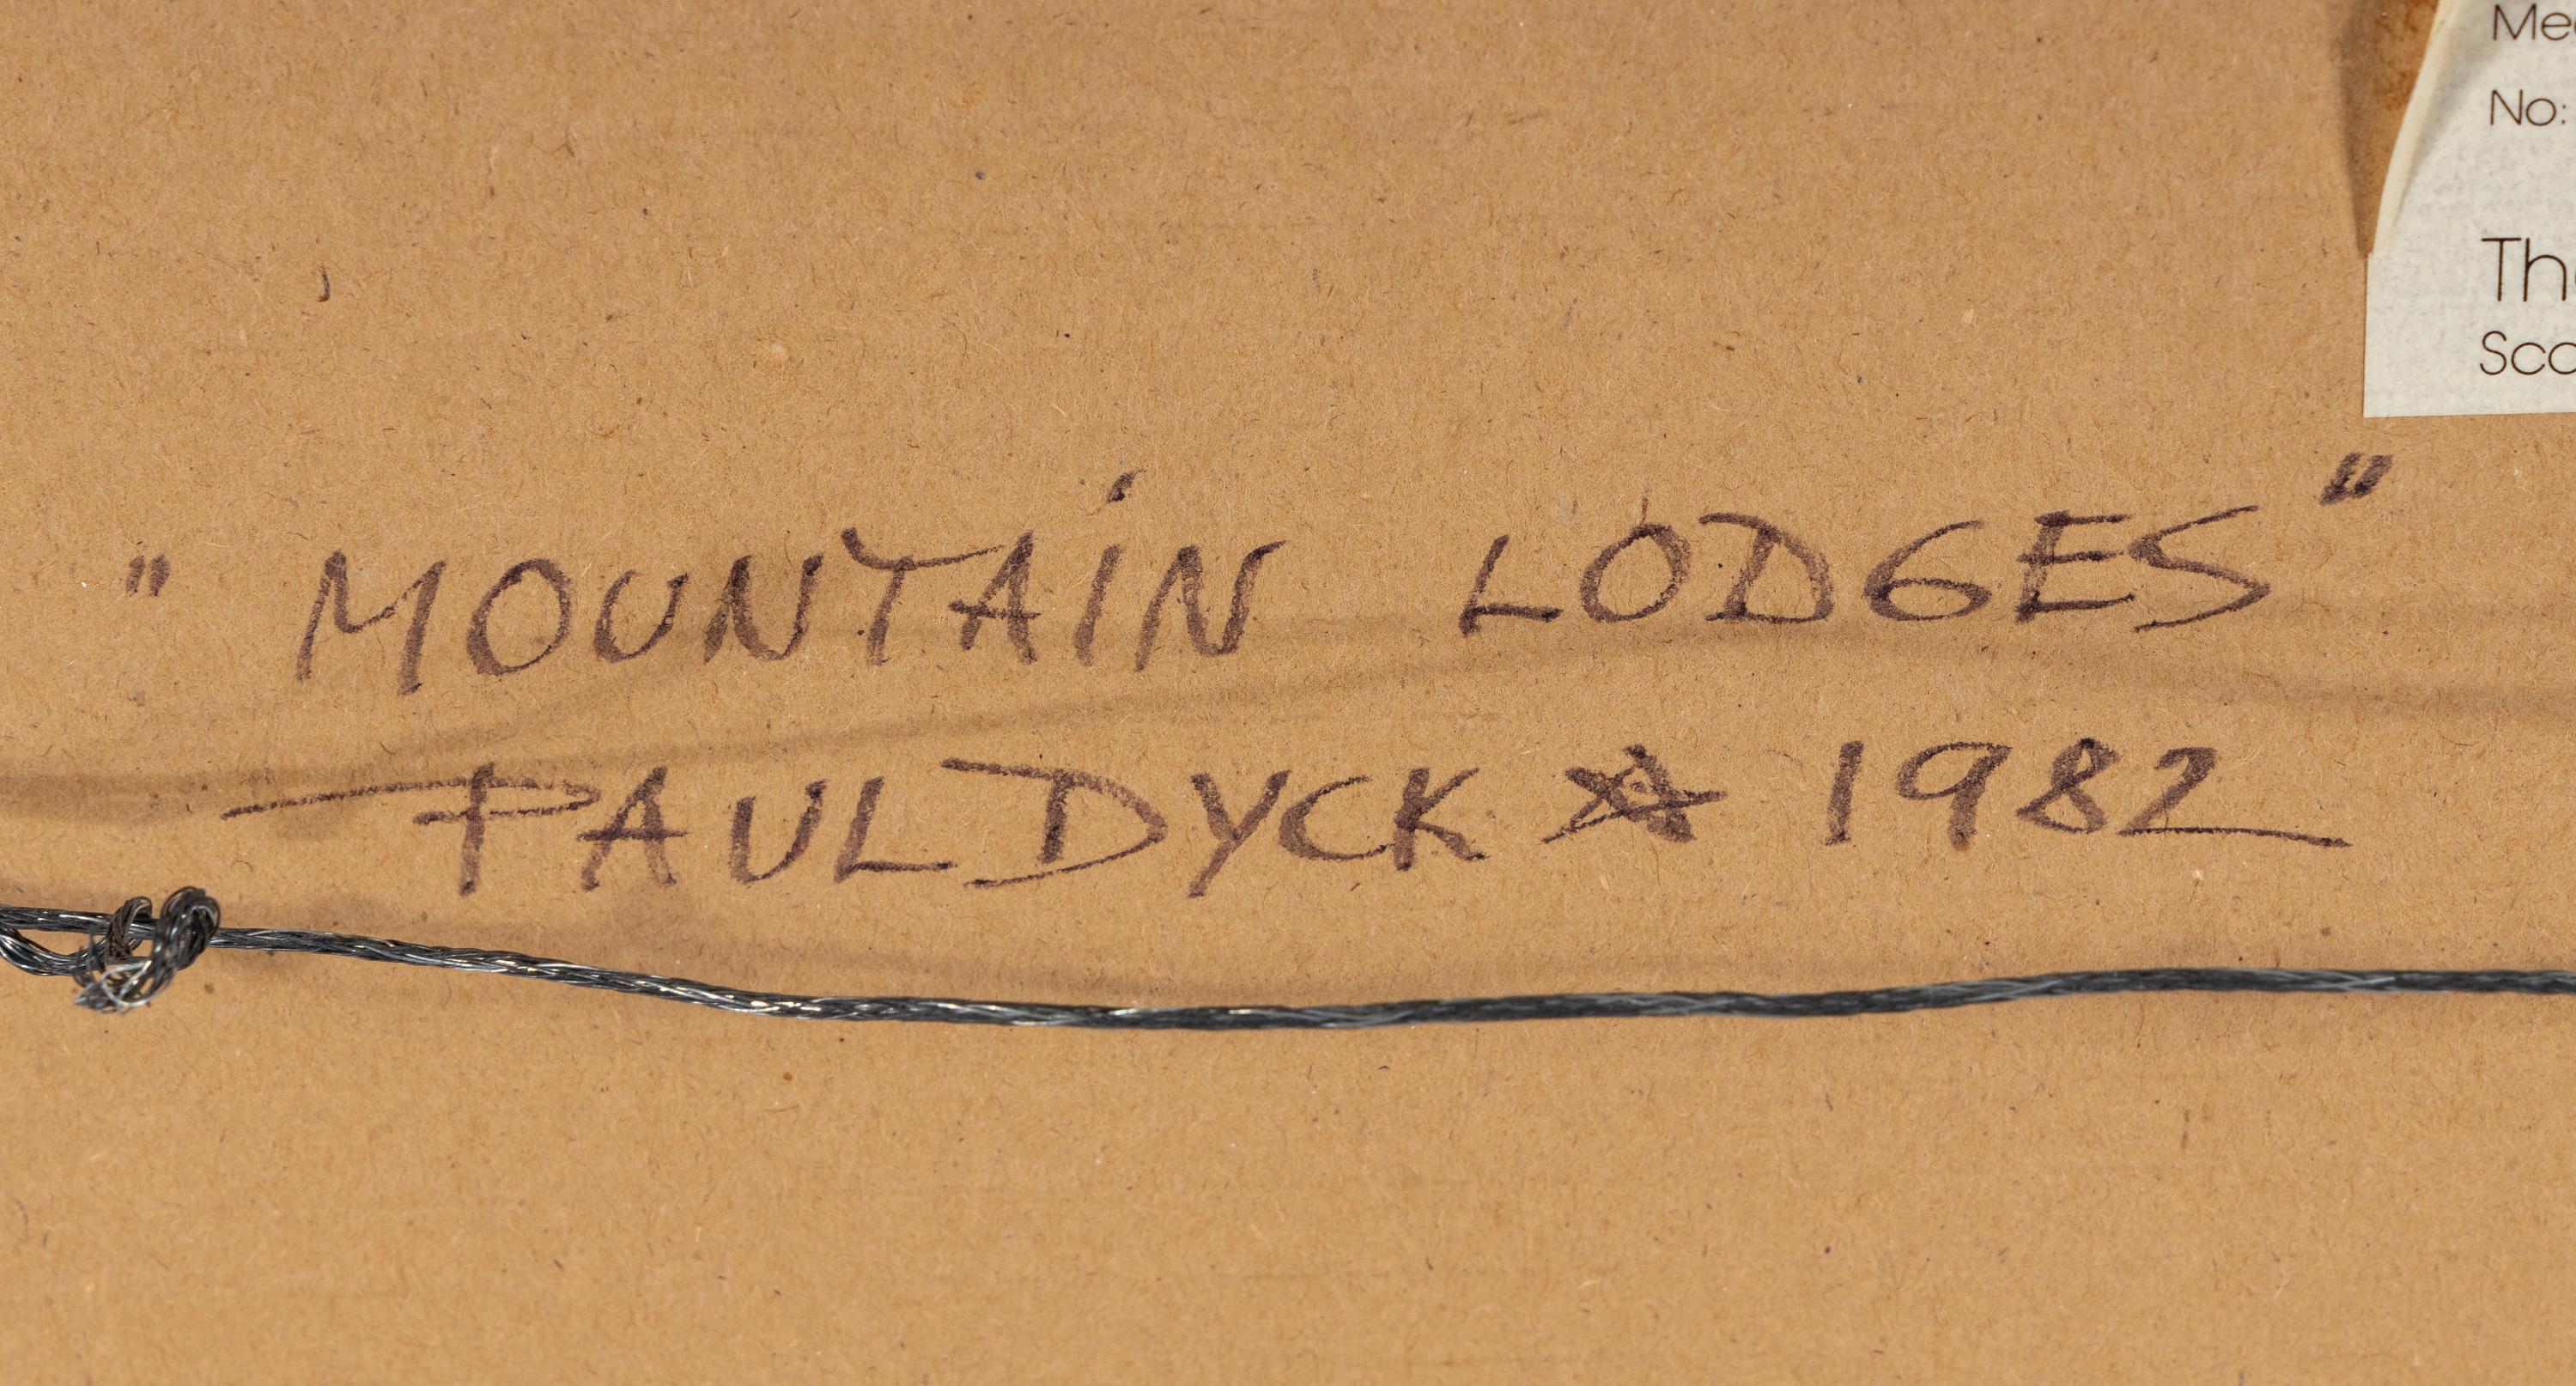 No:
" MOUNTAIN LODGES "
PAUL DYCK ☆ 1982